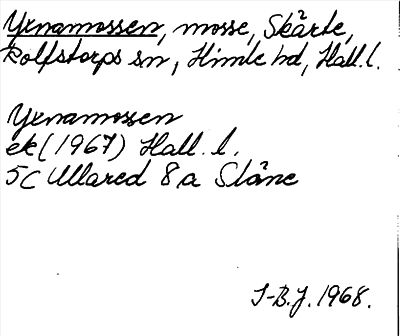 Yxnamossen, mosse, Skärte,
Rolfstorps sn, Himle hd, Hall. l.
Yxnamossen
ek (1967) Hall. l.
5C Ullared 8a Slåne
I-B.J. 1968.